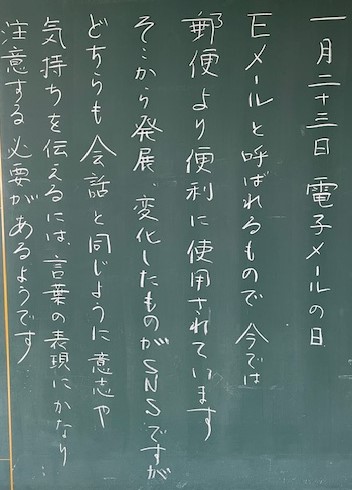 一月二十三日 電子メールの日
Eメールと呼ばれるもので 今では
郵便より便利に使用されています
そこから発展、変化したものがSNSですが
どちらも会話と同じように意志や
気持ちを伝えるには、言葉の表現にかなり
注意する必要があるようです